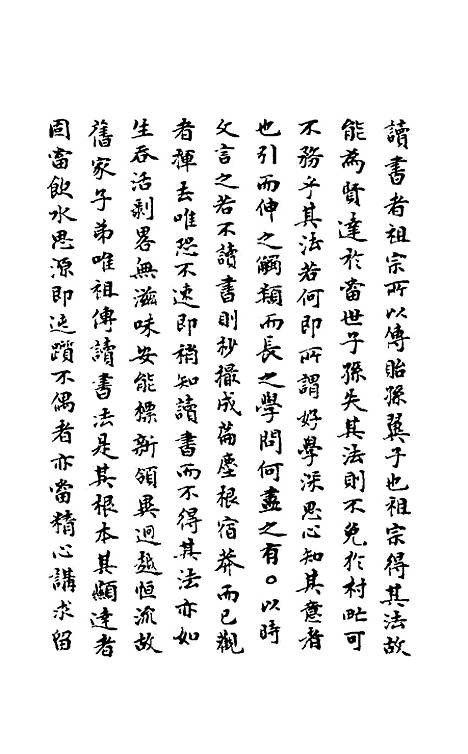 讀書者祖宗所以傳貽孫翼子也祖宗得其法故
能為賢達於當世子孫失其法則不免於村甿可
不務乎其法若何即所謂好學深思心知其意者
也引而伸之觸類而長之學問何盡之有。以時
文言之若不讀書則抄撮成篇塵根宿莽而已觀
者揮去唯恐不速即稍知讀書而不得其法亦如
生吞活剝畧無滋味安能標新領異迥越恒流故
舊家子弟唯祖傳讀書法是其根本其顯達者
固當飲水思源即迍躓不偶者亦當精心講求留